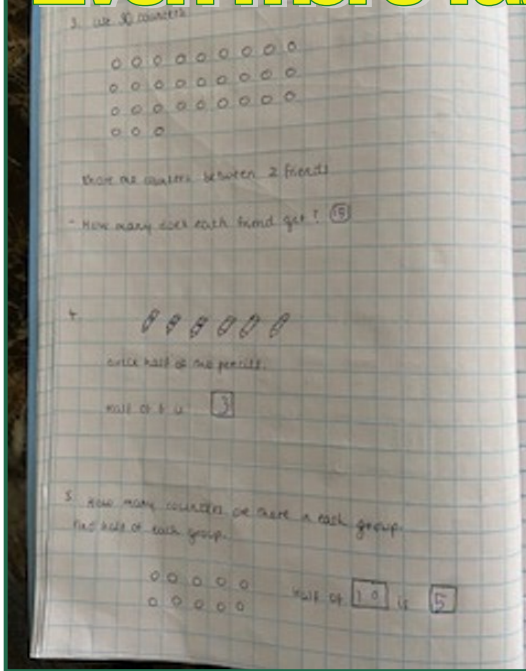 3. Use 30 counters
Share the counters between 2 friends
- How many does each friend get? 15
4.
circle half of the pencils.
half of 6 is 3
5. How many counters are there in each group.
Find half of each group.
half of 10 is 5